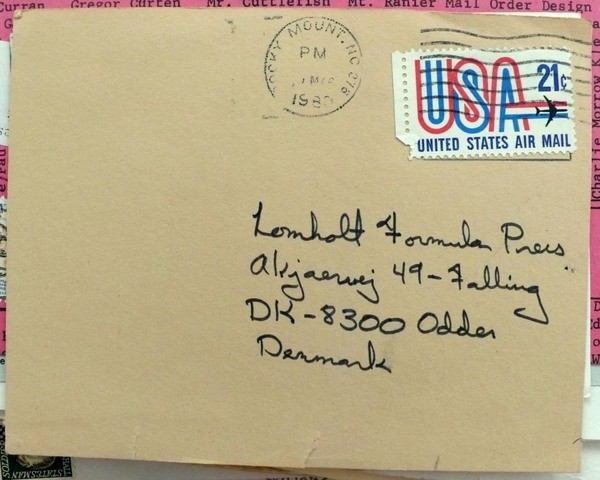 Curran Gregor Cürten Mr. Cuttlefish Mt. Ranier Mail Order Design
ROCKY MOUNT, NC 278
PM
1980
USA 21c
UNITED STATES AIR MAIL
Lomholt Formular Press
Akjaervej 49-Falling
DK-8300 Odder
Denmark
Charlie Morrow
STATESMAN